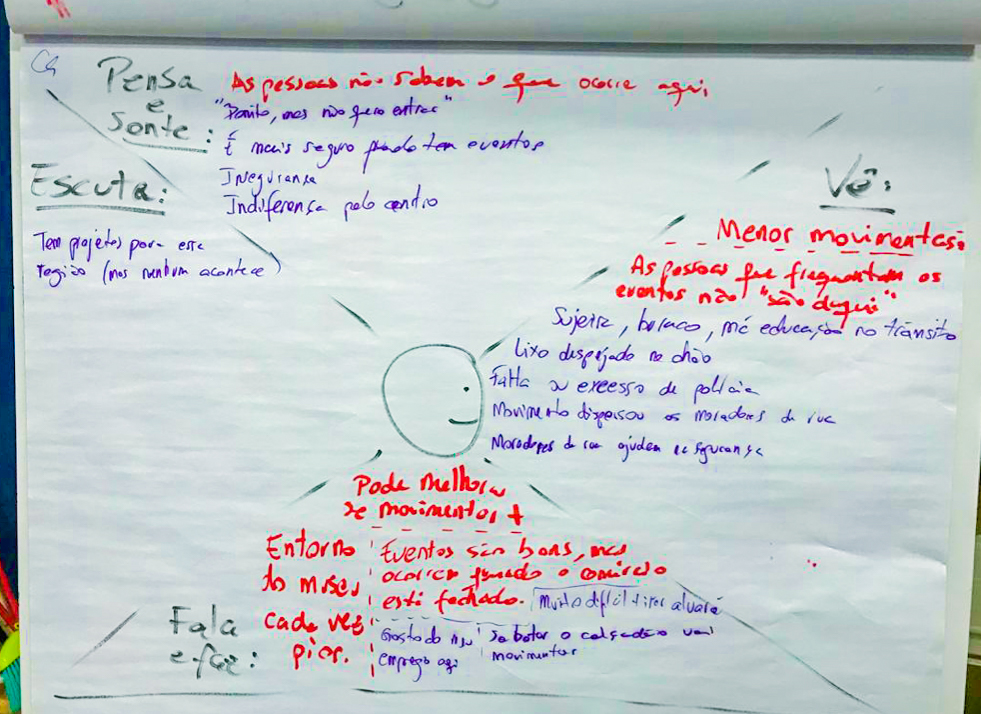 Pensa
e
sente:
As pessoas não sabem o que ocorre aqui
"Bonito, mas não quero entrar"
É mais seguro quando tem eventos
Insegurança
Indiferença pelo centro
Escuta:
Tem projetos para essa
região (mas nenhum acontece)
Vê:
Menor movimentação
As pessoas que frequentam os
eventos não "são daqui"
Sujeira, buraco, má educação no trânsito
Lixo despejado no chão
Falta ou excesso de polícia
Movimento dispersou os moradores de rua
Moradores de rua ajudam na segurança
Pode melhorar
se movimentar +
Entorno
do museu
cada vez
pior.
Eventos são bons, mas
ocorrem quando o comércio
está fechado.
Muito difícil tirar alvará
Gosto do meu
emprego aqui
Se botar o calçadão vai
movimentar
Fala
e faz: